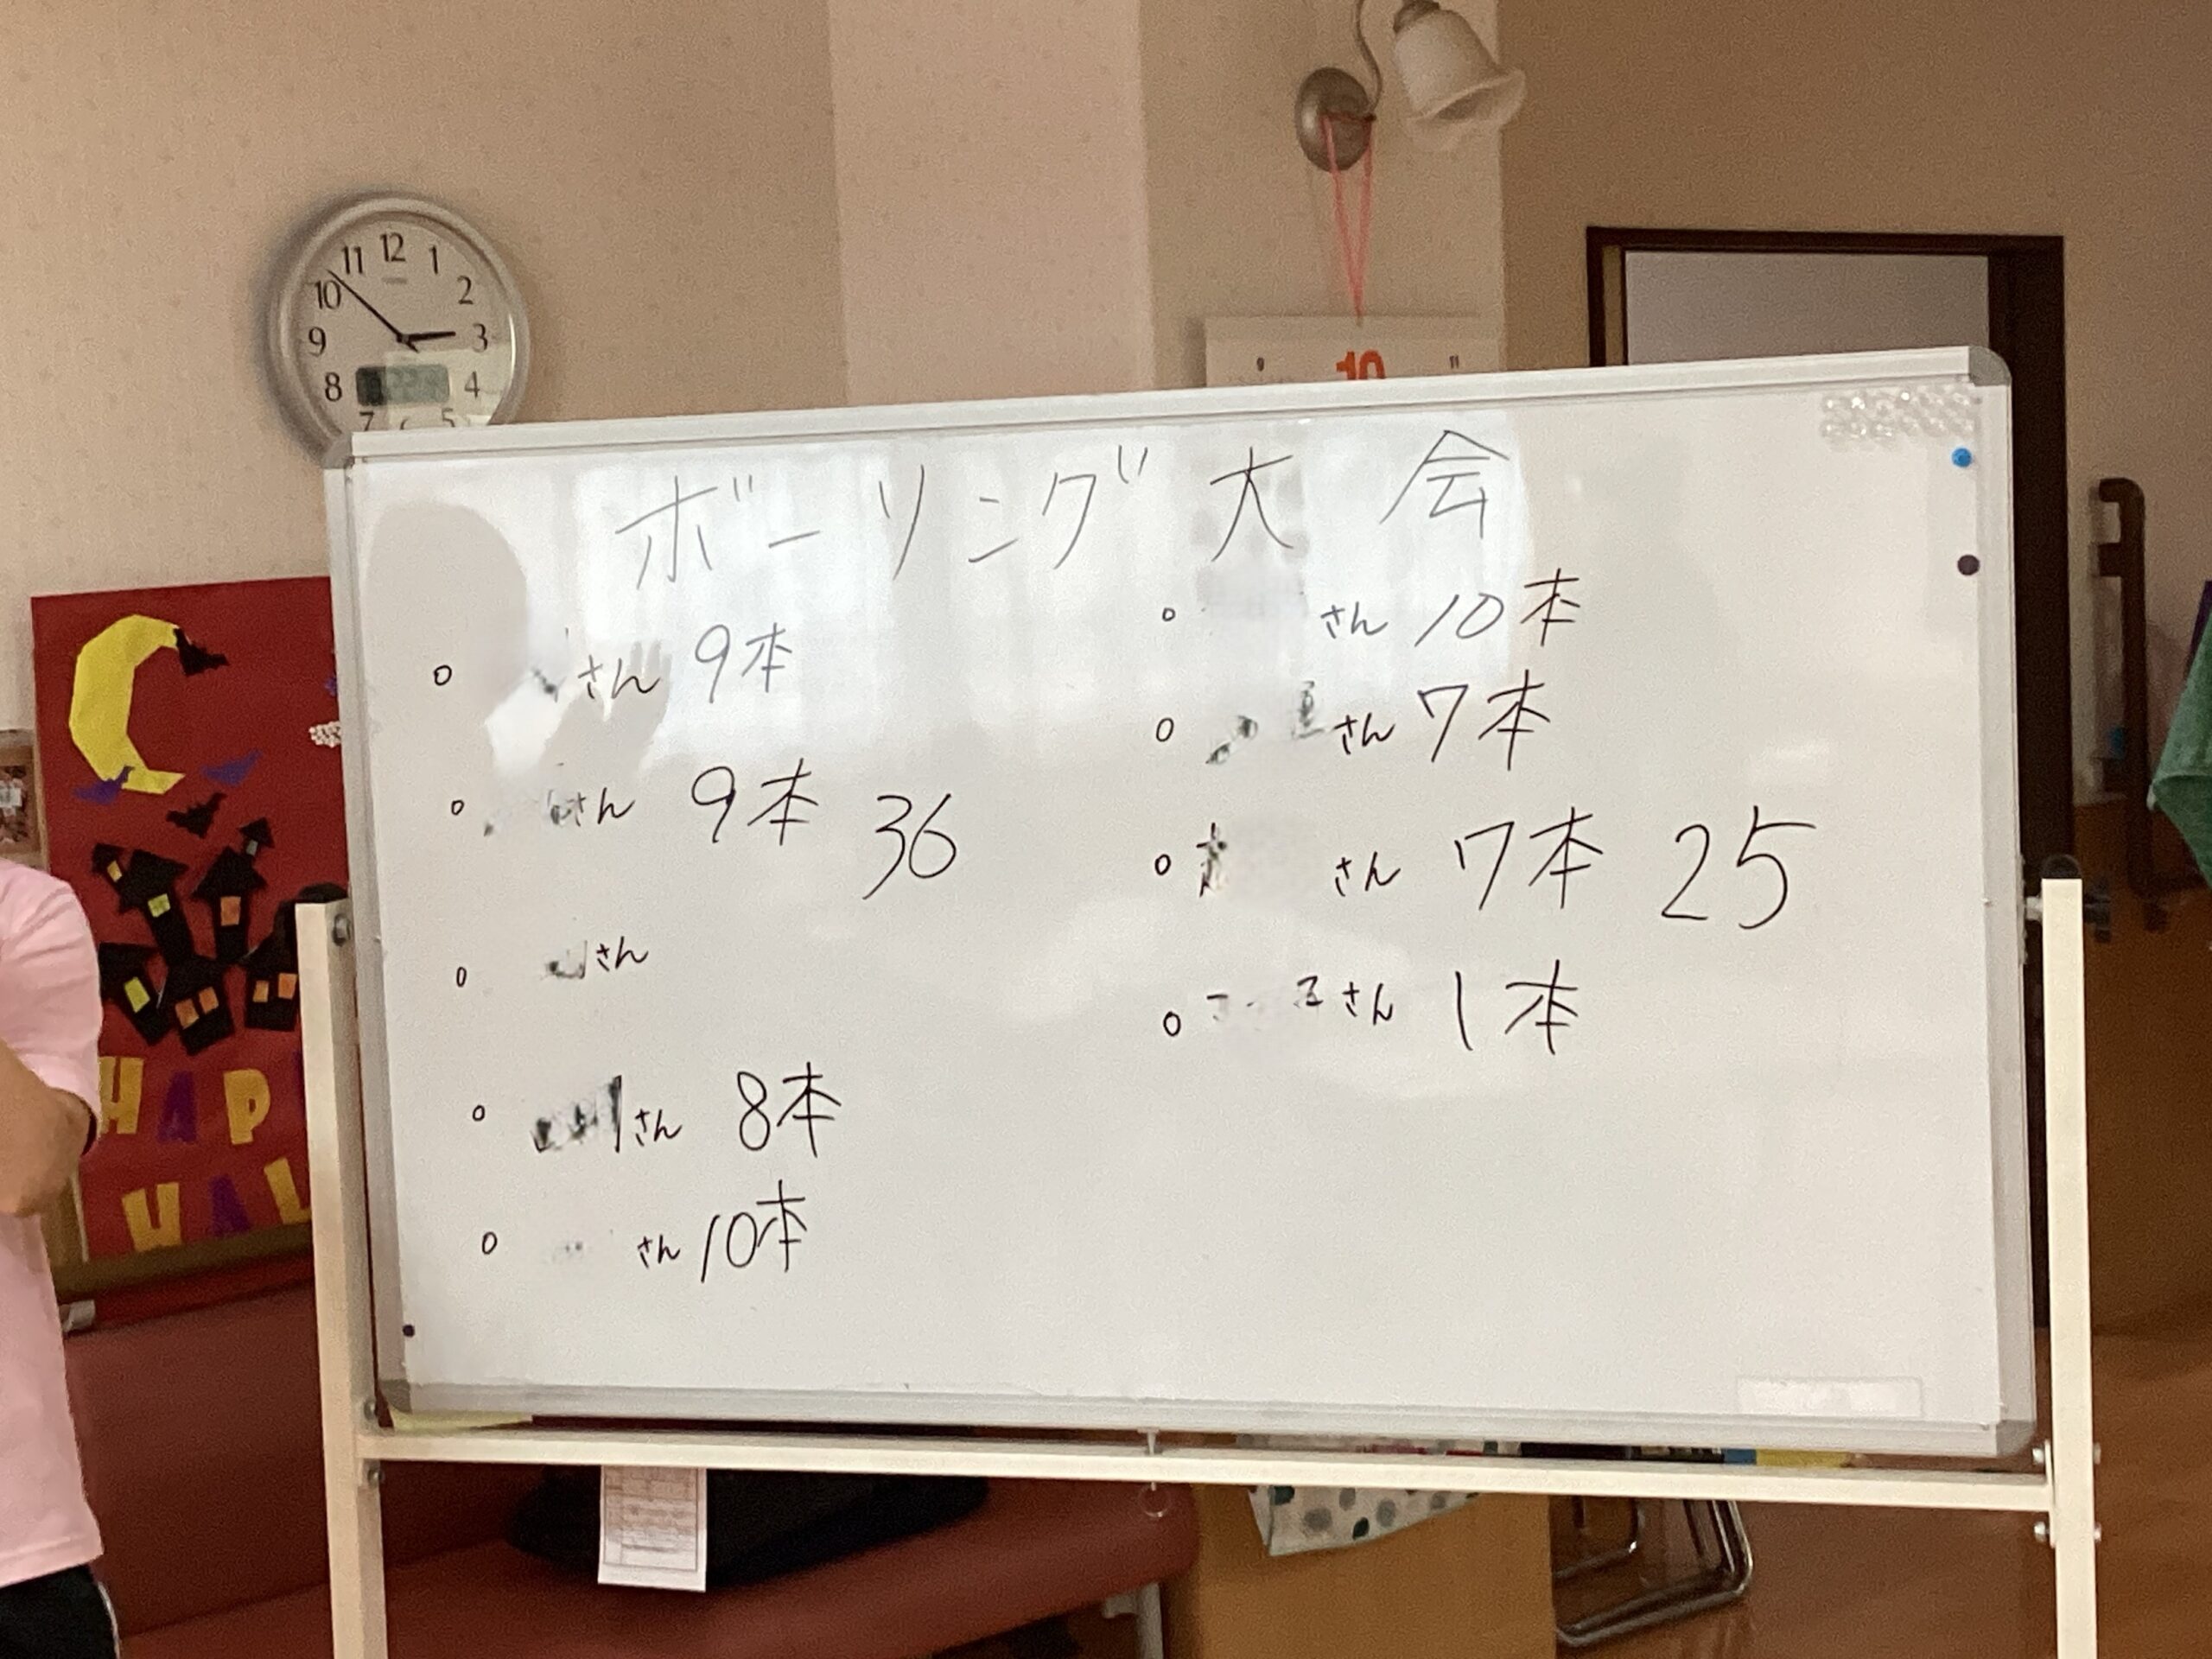 12
11 1
10 2
9 3
8 4
7 5
9 10 11
ボーリング大会
さん 9本
さん 9本 36
さん
さん 8本
さん 10本
さん 10本
さん 7本
さん 7本 25
さん 1本
HAP
HAL